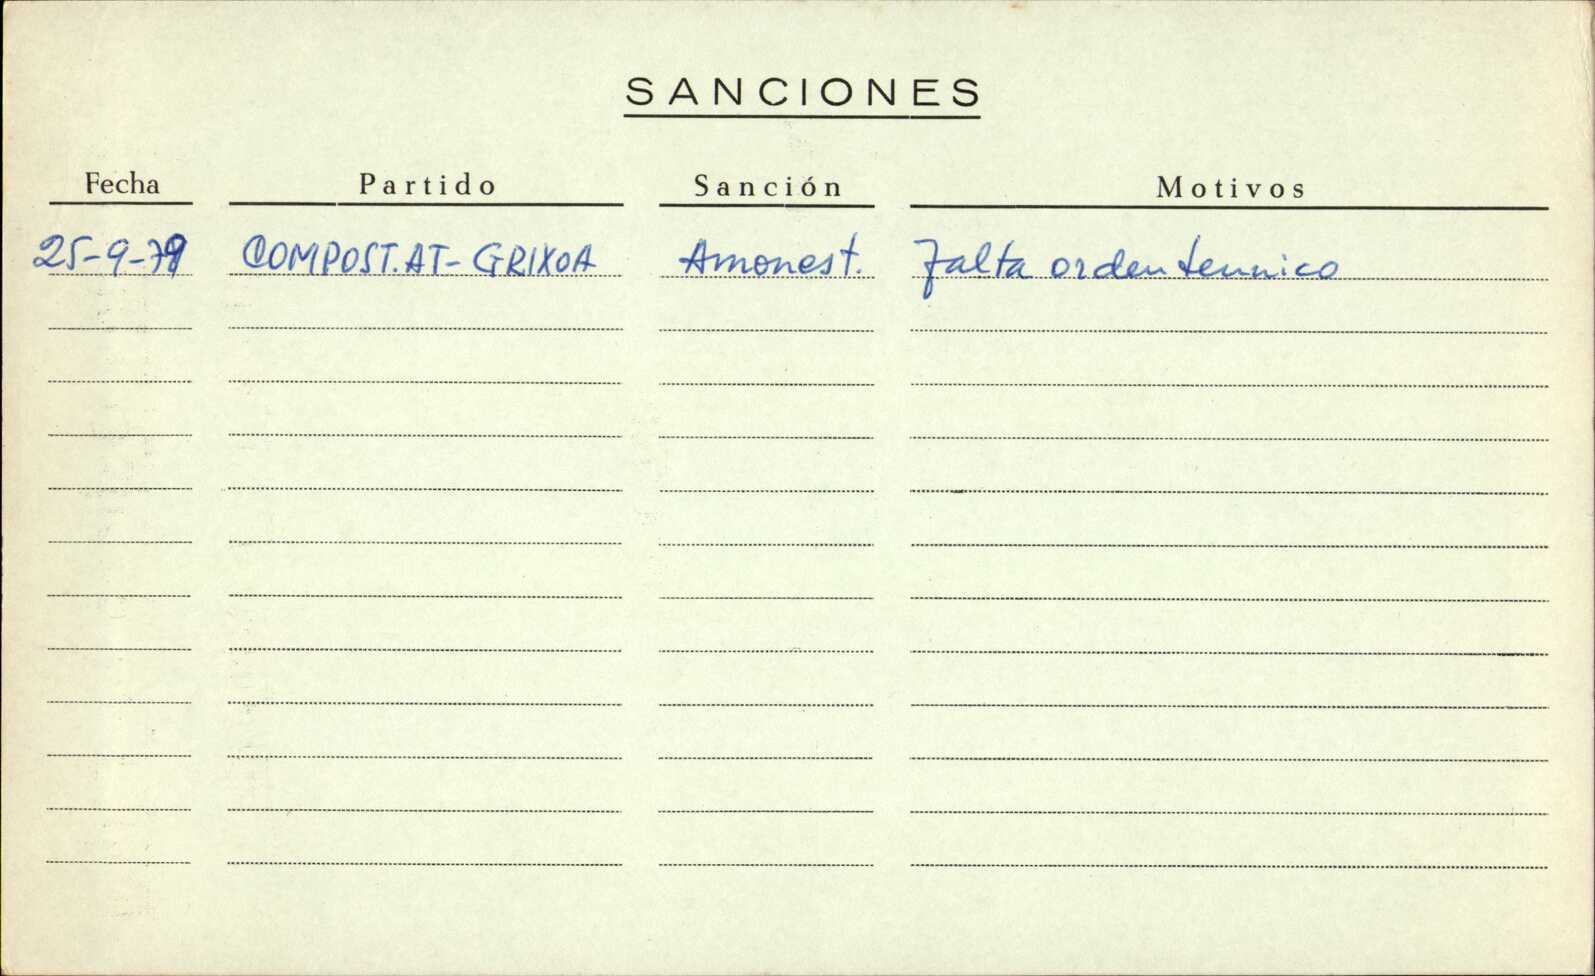 SANCIONES
Fecha Partido Sanción Motivos
25-9-79 COMPOST. AT - GRIXOA Amonest. Falta orden tecnico